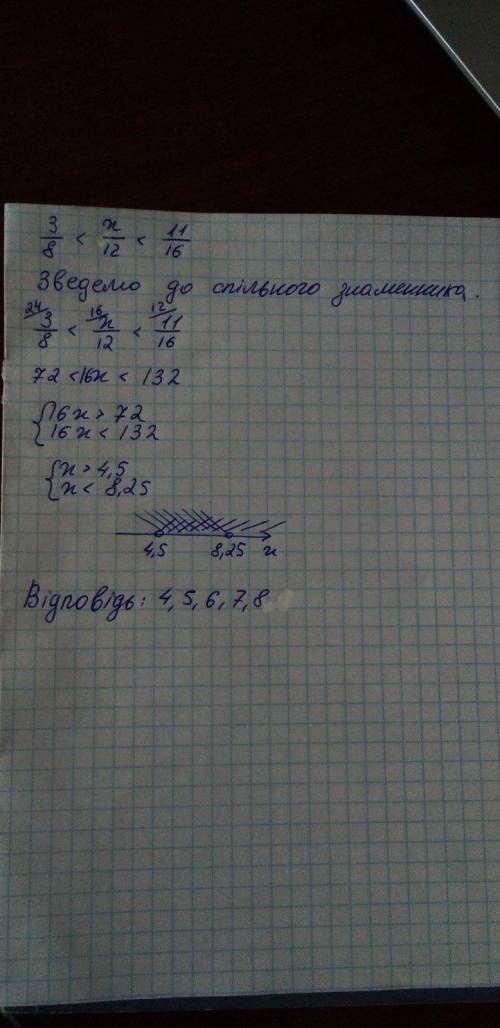 3/8 < x/12 < 11/16
Зведемо до спільного знаменника.
24/ 3/8 < 16/ x/12 < 12/ 11/16
72 < 16x < 132
{16x > 72
16x < 132
{x > 4,5
x < 8,25
4,5 8,25 x
Відповідь: 4, 5, 6, 7, 8